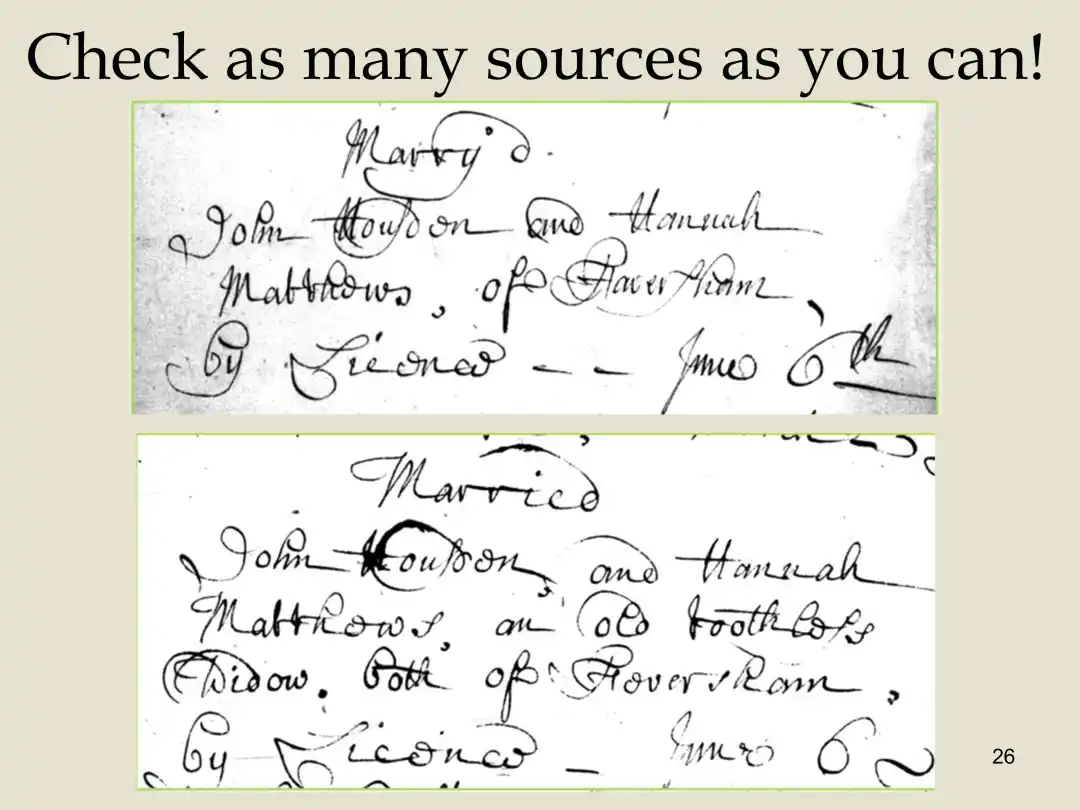 Check as many sources as you can!
Marry'd.
John Houson and Hannah
Matthews, of Faversham,
by Licence - - June 6th
Married
John Housson, and Hannah
Matthews, an old toothless
Widow. both of Feversham,
by Licence - June 6
26